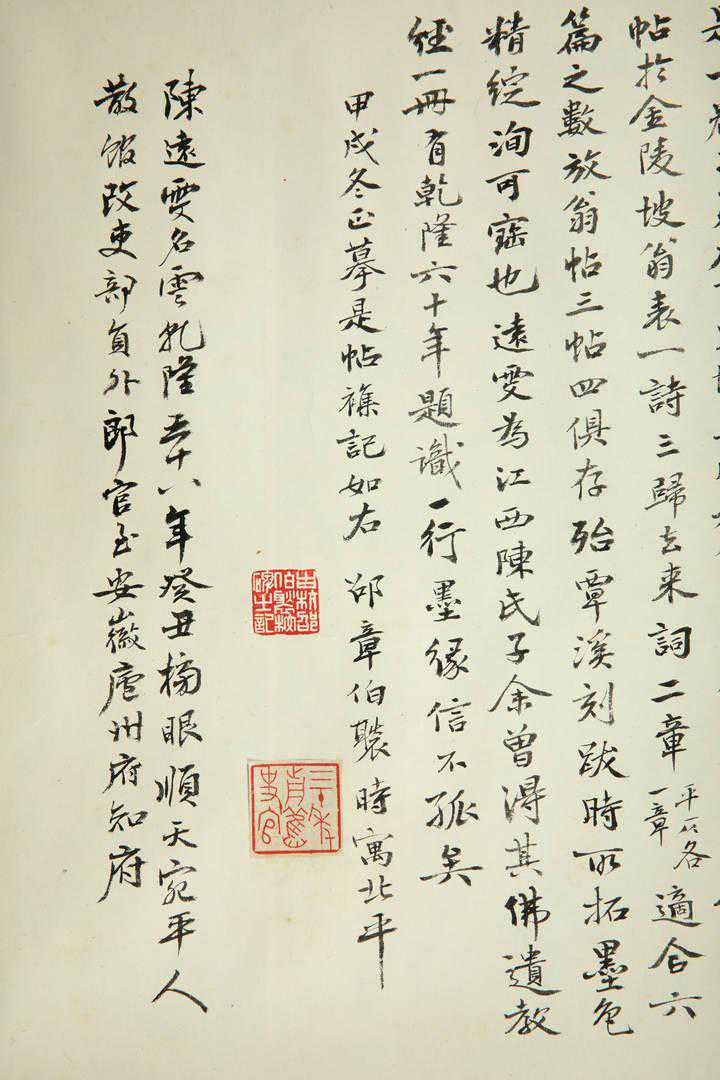 帖於金陵坡翁表一詩三歸去来詞二章 各一章 適合六
篇之數放翁帖三帖四俱存殆覃溪刻跋時所拓墨色
精綻洵可寶也遠雯為江西陳氏子余曽得其佛遺教
經一冊有乾隆六十年題識一行墨緣信不孤矣
甲戌冬正摹是帖襍記如右 邵章伯褧時寓北平
陳遠雯名雲乾隆五十八年癸丑榜眼順天宛平人
散館改吏部員外郎官至安徽廬州府知府